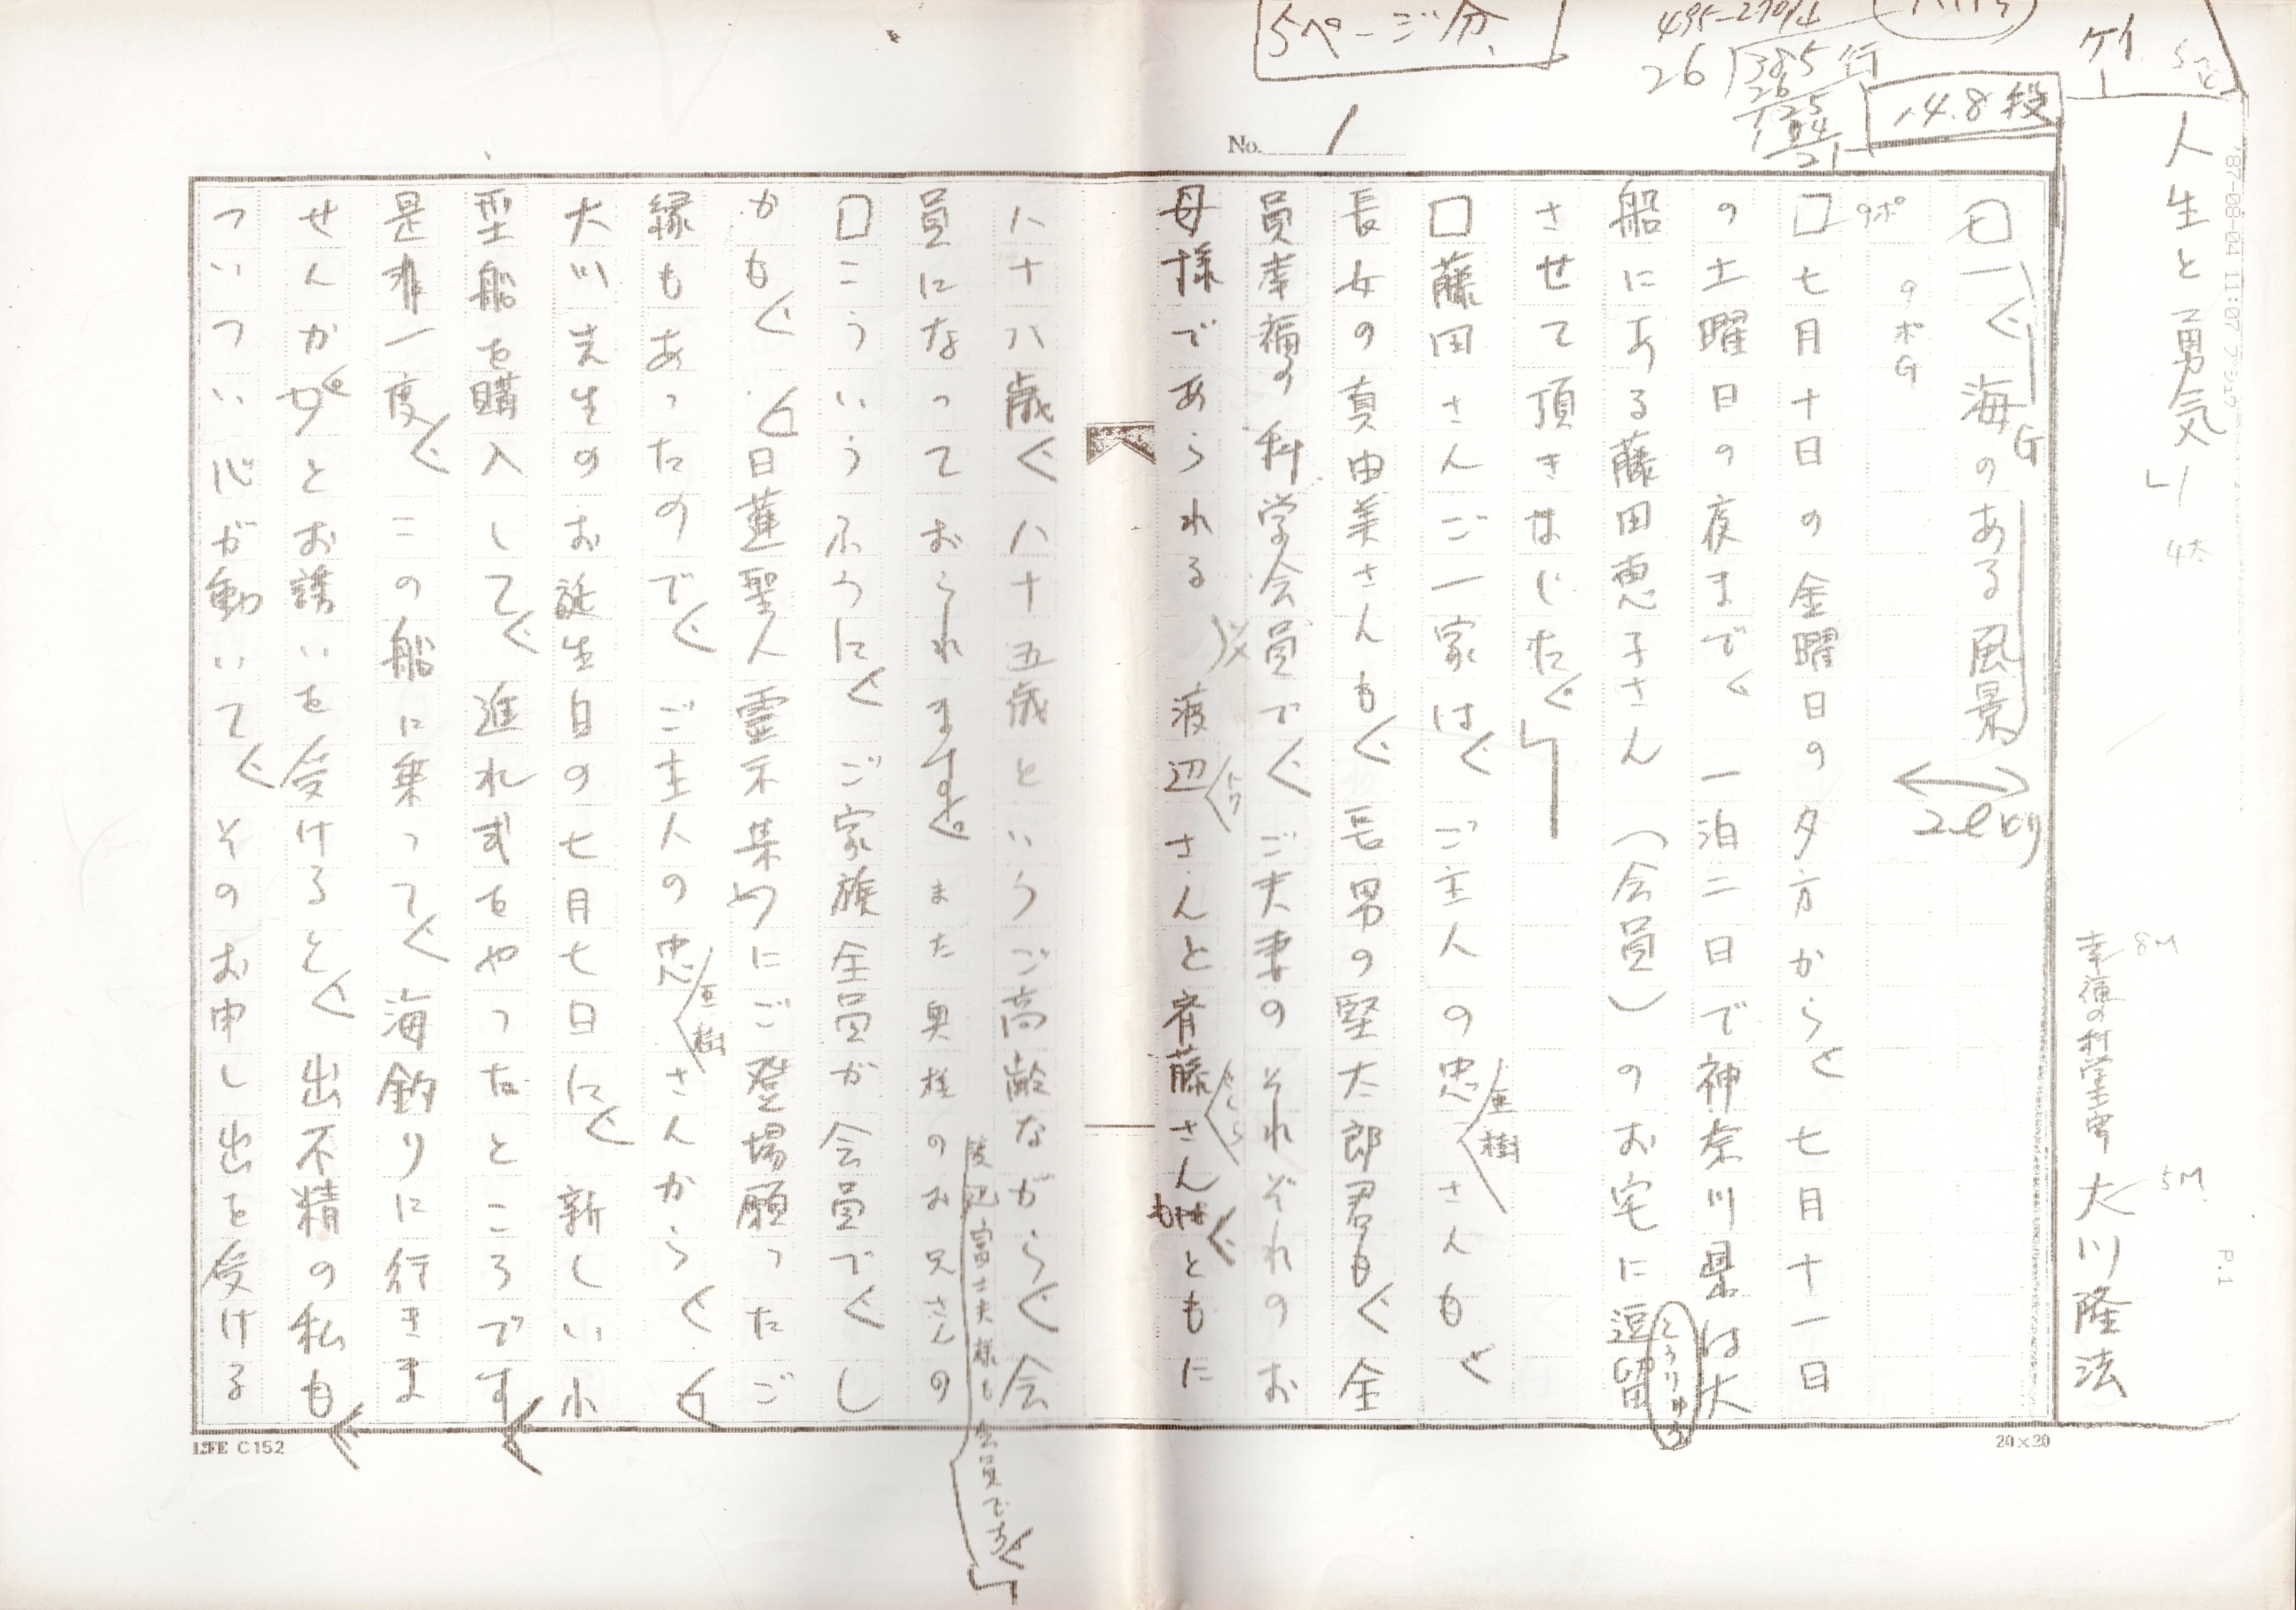 5ページ分
26 385行
14.8段
No. 1
人生と勇気
4大
幸福の科学主宰 大川隆法
8M
5M
P.1
'87-08-04 11:07
一、海のある風景
2lどり
9ポ
9ポG
七月十日の金曜日の夕方から、七月十一日
の土曜日の夜まで、一泊二日で神奈川県は大
船にある藤田恵子さん(会員)のお宅に逗留
とうりゅう
させて頂きました。
藤田さんご一家は、ご主人の忠さんも、
樹
長女の真由美さんも、長男の堅太郎君も、全
員幸福の科学会員で、ご夫妻のそれぞれのお
母様であられる渡辺さんと斉藤さんもともに
八十八歳、八十五歳というご高齢ながら、会
員になっておられます。また奥様のお兄さんの
渡辺富士夫様も会員です。
こういうふうに、ご家族全員が会員で、し
かも、日蓮聖人霊示集めにご登場願ったご
縁もあったので、ご主人の忠さんから、
樹
大川先生のお誕生日の七月七日に、新しい小
型船を購入して、進水式をやったところです。
是非一度、この船に乗って、海釣りに行きま
せんか。とお誘いを受けると、出不精の私も、
ついつい心が動いて、そのお申し出を受ける
LIFE C152
20×20